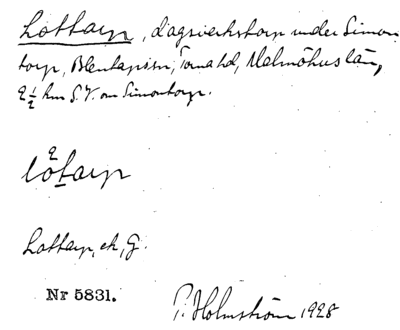 Lottarp, dagsverkstorp under Simon-
torp, Blentarps sn, Torna hd, Malmöhus län,
2 ½ km S.V. om Simontorp.
lòtarp
Lottarp, ek, G.
Nr 5831.
P. Holmström 1928